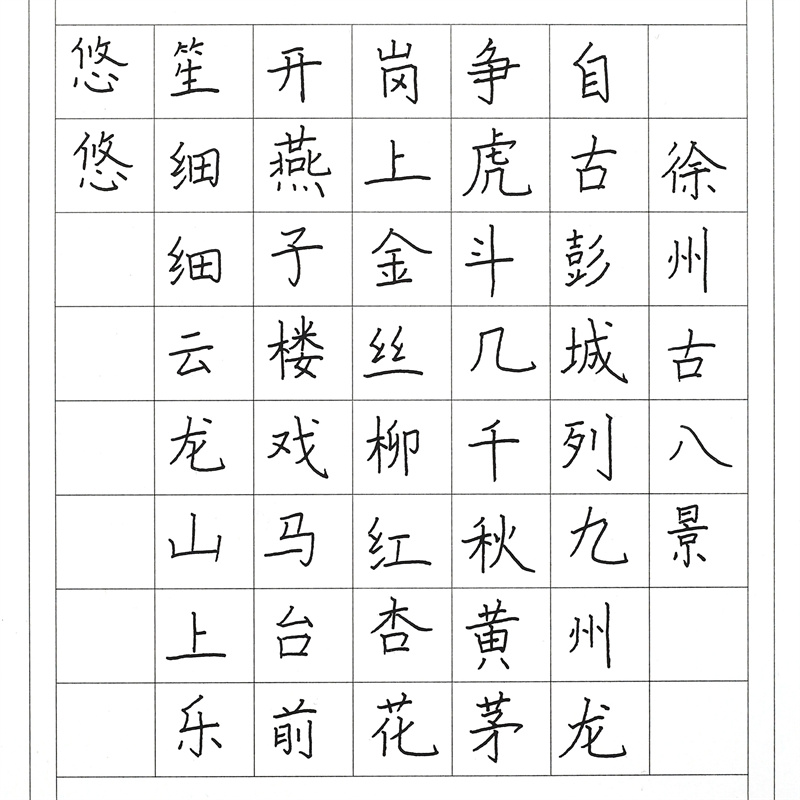 徐州古八景
自古彭城列九州龙
争虎斗几千秋黄茅
岗上金丝柳红杏花
开燕子楼戏马台前
笙细细云龙山上乐
悠悠